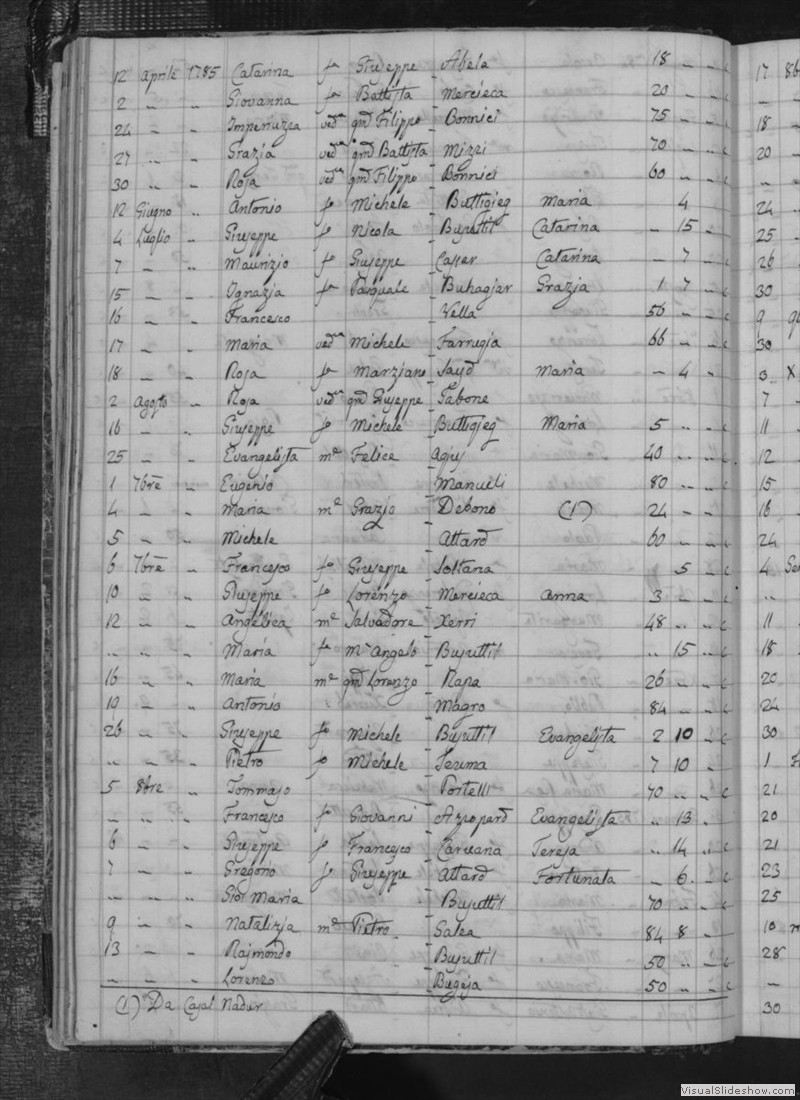 12 aprile 1785 Catarina fa Giuseppe Abela 18 .. .. c
2 .. .. Giovanna fa Battista Mercieca 20 .. .. c
24 .. .. Imperiuzza veda qm Filippo Bonnici 75 .. .. c
27 .. .. Grazia veda qm Battista Mizzi 70 .. .. c
30 .. .. Rosa veda qm Filippo Bonnici 60 .. .. c
12 Giugno .. Antonio fo Michele Buttigieg Maria 4 .. c
4 Luglio .. Giuseppe fo Nicola Busuttil Catarina .. 15 .. c
7 .. .. Maurizio fo Giuseppe Casser Catarina .. 7 .. c
15 .. .. Ignazia fa Pasquale Buhagiar Grazia 1 7 .. c
16 .. .. Francesco Vella 56 .. .. c
17 .. .. Maria veda Michele Farrugia 66 .. .. c
18 .. .. Rosa fa Marziano Sayd Maria .. 4 ..
2 Agosto .. Rosa veda qm Giuseppe Tabone
16 .. .. Giuseppe fo Michele Buttigieg Maria 5 .. .. c
25 .. .. Evangelista me Felice Agius 40 .. .. c
1 7bre .. Eugenio Manueli 80 .. .. c
4 .. .. Maria me Grazio Debono (1) 24 .. .. c
5 .. .. Michele Attard 60 .. .. c
6 7bre .. Francesco fo Giuseppe Soltana 5 .. c
10 .. .. Giuseppe fo Lorenzo Mercieca Anna 3 .. .. c
12 .. .. Angelica me Salvadore Xerri 48 .. .. c
.. .. .. Maria fa Mo Angelo Busuttil .. 15 .. c
16 .. .. Maria me qm Lorenzo Rapa 26 .. .. c
10 .. .. Antonio Magro 84 .. .. c
26 .. .. Giuseppe fo Michele Busuttil Evangelista 2 10 .. c
.. .. .. Pietro fo Michele Teuma 7 10 .. c
5 8bre .. Tommaso Portelli 70 .. .. c
.. .. .. Francesco fo Giovanni Azzopard Evangelista .. 13 ..
6 .. .. Giuseppe fo Francesco Caruana Teresa .. 14 .. c
7 .. .. Gregorio fo Giuseppe Attard Fortunata .. 6 .. c
.. .. .. Gior Maria Busuttil 70 .. .. c
9 .. .. Natalizia me Pietro Galea 84 8 .. c
13 .. .. Rajmondo Busuttil 50 .. .. c
.. .. .. Lorenzo Bugeja 50 .. .. c
(1) Da Casal Nadur
17
18
20
24
25
26
30
9
30
3 X
7
11
12
15
16
24
4
11
18
20
24
30
1
21
20
21
23
25
10
28
30
VisualSlideshow.com